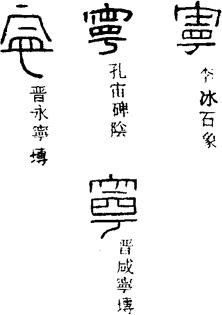 寧
李冰石象
寧
孔宙碑陰
晋永寧塼
寧
晋咸寧塼